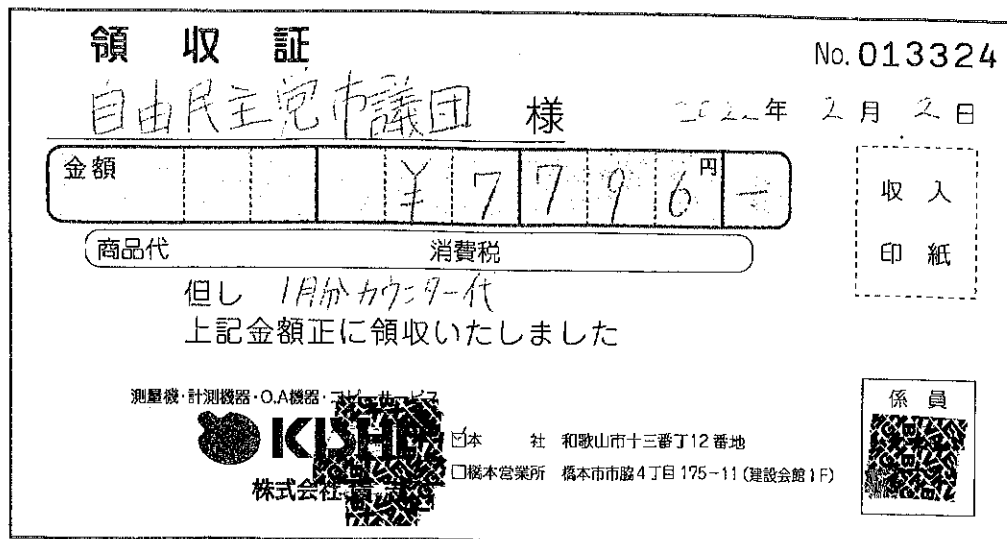 領収証
No.013324
自由民主党市議団 様
2022年 2月 2日
金額 ¥7796円
商品代 消費税
収入
印紙
但し 1月分カウンター代
上記金額正に領収いたしました
測量機・計測機器・O.A機器・コピーサービス
KISHI
株式会社
☑本社 和歌山市十三番丁12番地
□橋本営業所 橋本市市脇4丁目175-11(建設会館1F)
係員